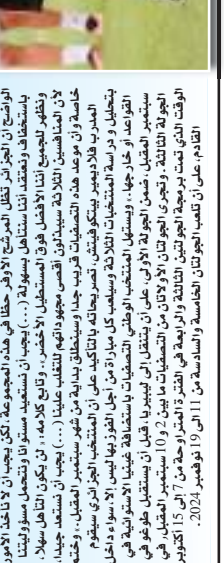 الواضح أن الجزائر تظل المرشح الأوفر حظا في هذه المجموعة، لكن يجب أن لا ناخذ الأمور
باستخفاف ونعتقد أننا سنتأهل بسهولة (...) يجب أن نستعيد مستوانا ونتحمل مسؤوليتنا
ونظهر للجميع أننا الأفضل فوق المستطيل الأخضر، وتابع كلامه: لن يكون التأهل سهلا،
لأن المنافسين الثلاثة سيبذلون أقصى مجهوداتهم للتغلب علينا (...) يجب أن نستعد جيدا،
خاصة وأن موعد هذه التصفيات قريب جدا وسينطلق بداية من شهر سبتمبر المقبل، وختم
المدرب فلاديمير بيتكوفيتش، تصريحاته بالتأكيد على أن المنتخب الجزائري سيقوم
بتحليل ودراسة المنتخبات الثلاثة وسيلعب كل مباراة من أجل الفوز بها ليس إلا، سواء داخل
القواعد أو خارجها، ويستهل المنتخب الوطني التصفيات باستضافة غينيا الاستوائية في
سبتمبر المقبل، ضمن الجولة الأولى، على أن يتنقل إلى ليبيريا، قبل أن يستقبل طوغو في
الجولة الثالثة، وتجرى الجولتان الأولاتان من التصفيات ما بين 2 و10 سبتمبر المقبل، في
الوقت الذي تمت برمجة الجولتين الثالثة والرابعة في الفترة المتراوحة من 7 إلى 15 أكتوبر
القادم، على أن تلعب الجولتان الخامسة والسادسة من 11 الى 19 نوفمبر 2024.